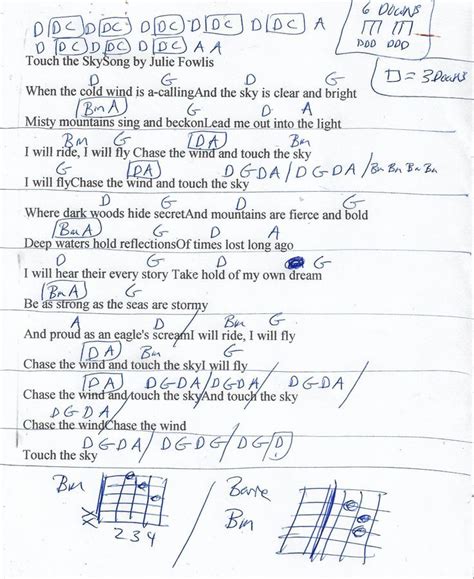 D DC DC D DC DC D DC DC A
6 Downs
D DC DC D DC A A
DDD DDD
Touch the SkySong by Julie Fowlis
□ = 3 Downs
D G D G
When the cold wind is a-callingAnd the sky is clear and bright
Bm A G D A
Misty mountains sing and beckonLead me out into the light
Bm G DA Bm
I will ride, I will fly Chase the wind and touch the sky
G DA DGDA/DGDA/Bm Bm Bm Bm
I will flyChase the wind and touch the sky
D G D G
Where dark woods hide secretAnd mountains are fierce and bold
Bm A G D A
Deep waters hold reflectionsOf times lost long ago
D G D G
I will hear their every story Take hold of my own dream
Bm A G
Be as strong as the seas are stormy
A D Bm G
And proud as an eagle's screamI will ride, I will fly
DA Bm G
Chase the wind and touch the skyI will fly
DA DGDA/DGDA/ DGDA/
Chase the wind and touch the skyAnd touch the sky
DGDA/
Chase the windChase the wind
DGDA/DGDG/DGD
Touch the sky
Bm / Barre
XX Bm
234